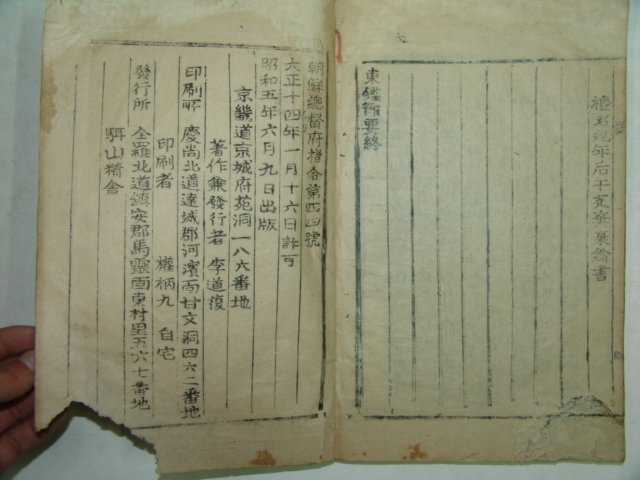 檀君紀年后干支葉翁書
東鑑節要終
朝鮮總督府指令第四四號
大正十四年一月十六日許可
昭和五年六月九日出版
京畿道京城府苑洞一八六番地
著作兼發行者 李道復
印刷所 慶尚北道達城郡河濱面甘文洞四六二番地
印刷者 權柄九 自宅
發行所 全羅北道鎮安郡馬靈面東村里五六七番地
駬山精舍